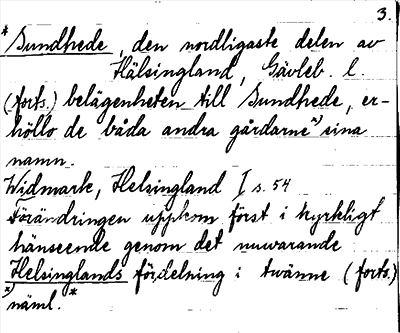 3.
* Sundhede, den nordligaste delen av
Hälsingland, Gävleb. l.
(forts.) belägenheten till Sundhede, er-
höllo de båda andra gårdarne *) sina
namn.
Widmark, Helsingland I s. 54
Förändringen uppkom först i kyrkligt
hänseende genom det nuvarande
Helsinglands fördelning i tvänne (forts.)
*) näml. *